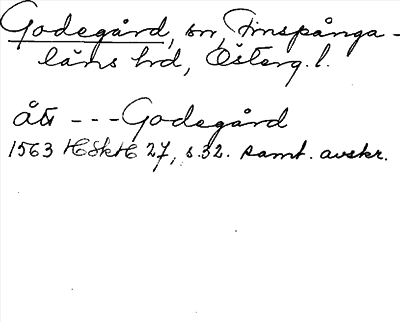 Godegård, sn, Finspånga-
läns hd, Österg. l.
åt --- Godegård
1563 HSkH 27, s. 32. samt. avskr.